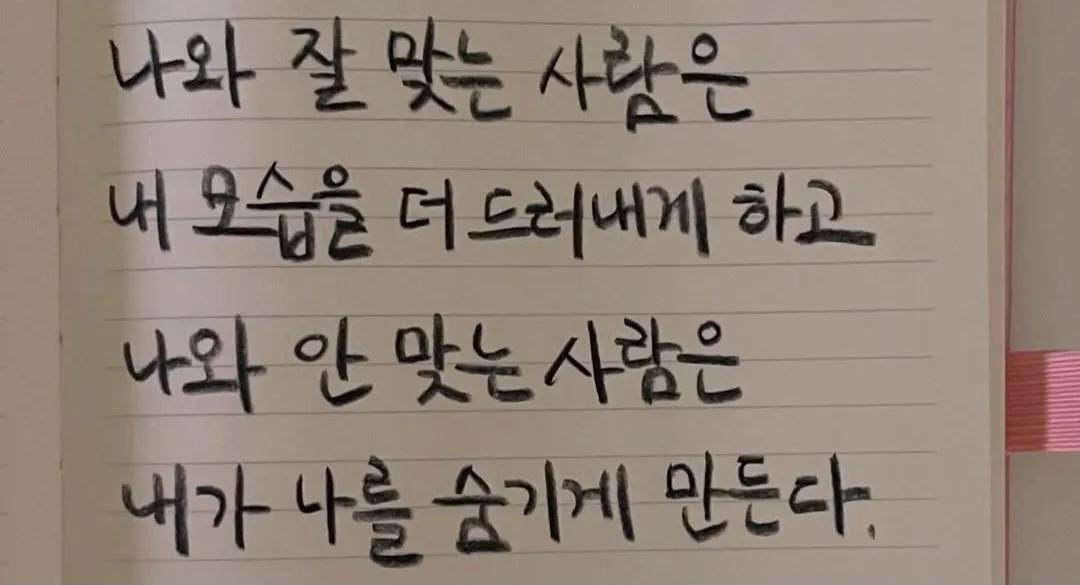 나와 잘 맞는 사람은
내 모습을 더 드러내게 하고
나와 안 맞는 사람은
내가 나를 숨기게 만든다.